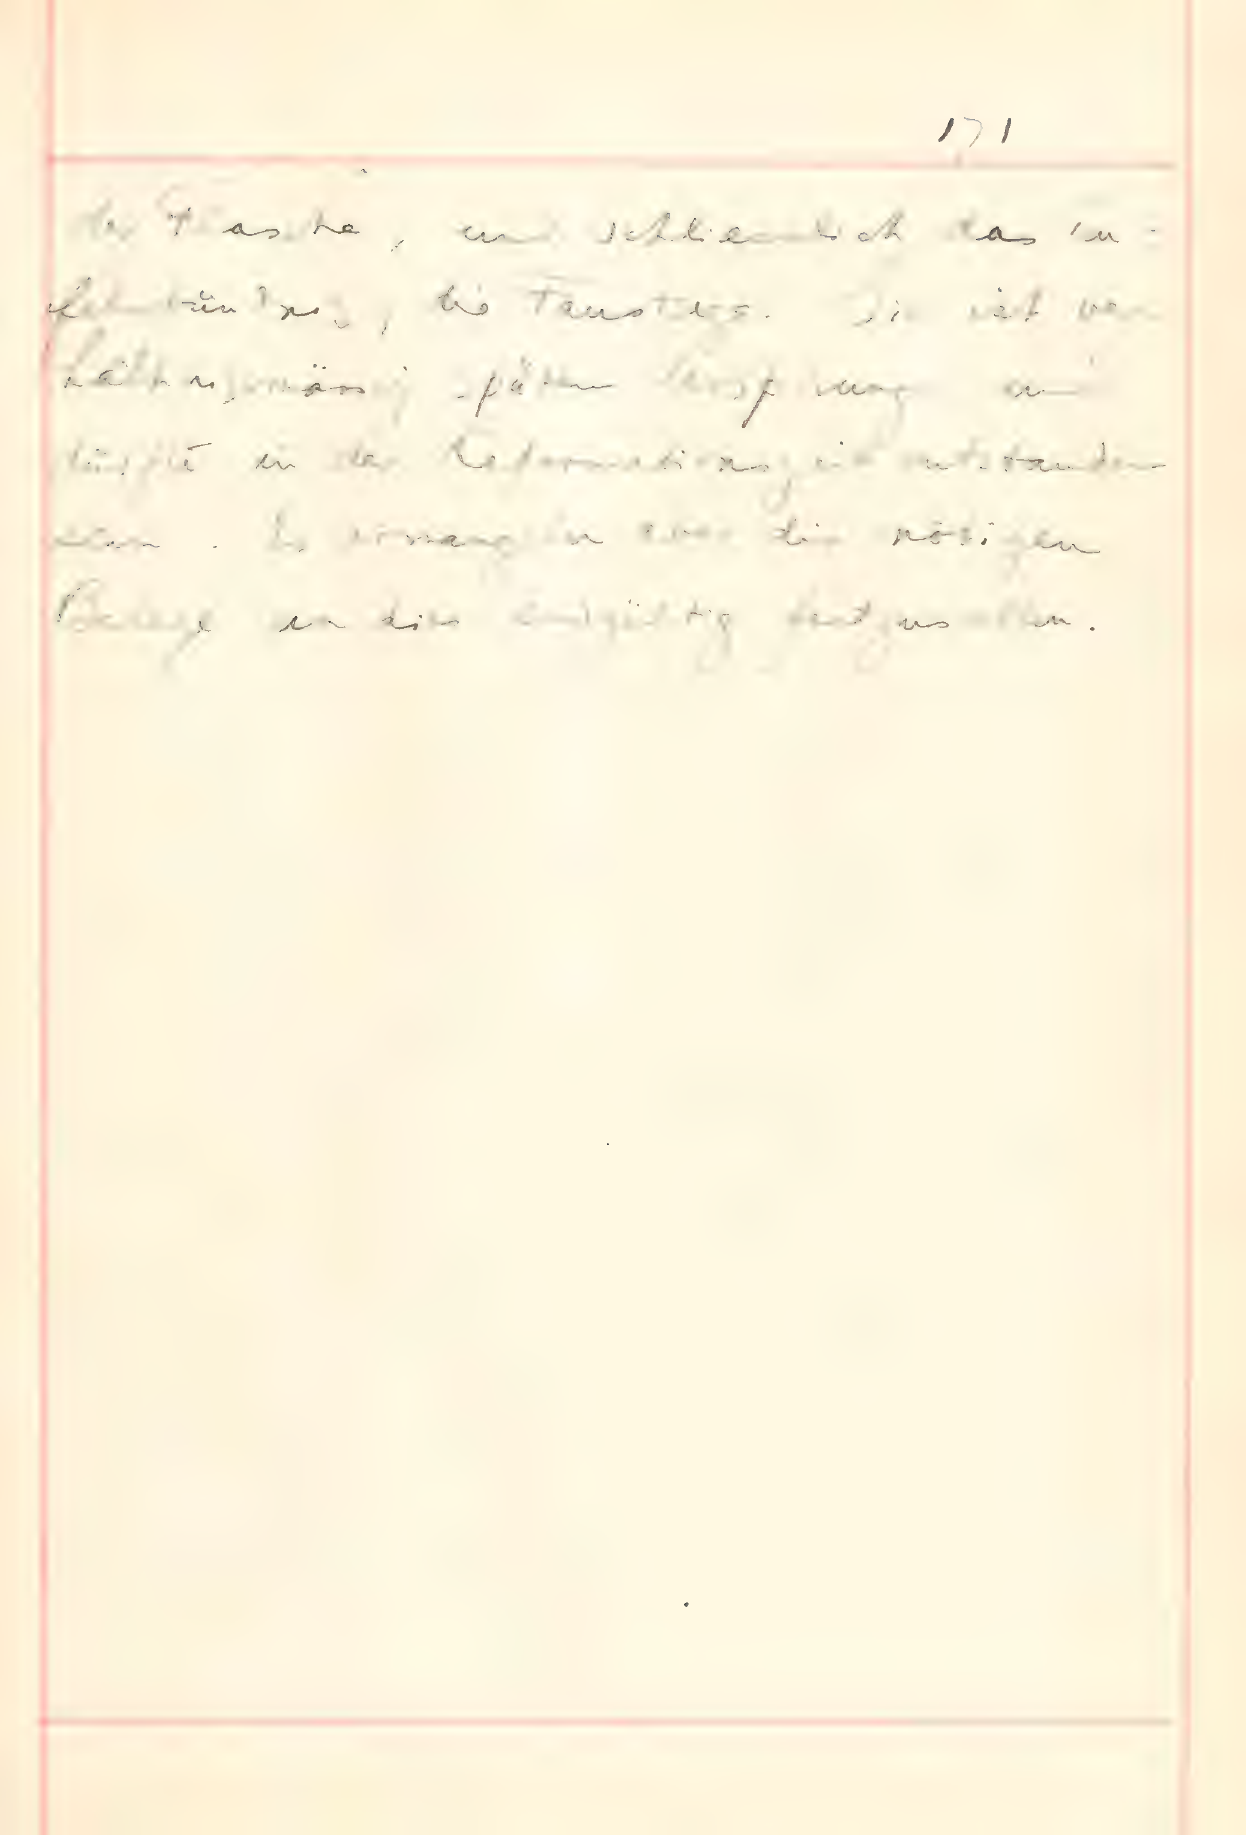 171
der Flasche, und schliesslich das in-
die Faustsage. Sie ist ver-
hältnismässig späten Ursprungs und
dürfte in der Reformationszeit entstanden
sein. Es ermangeln aber die nötigen
Belege um dies endgültig festzustellen.